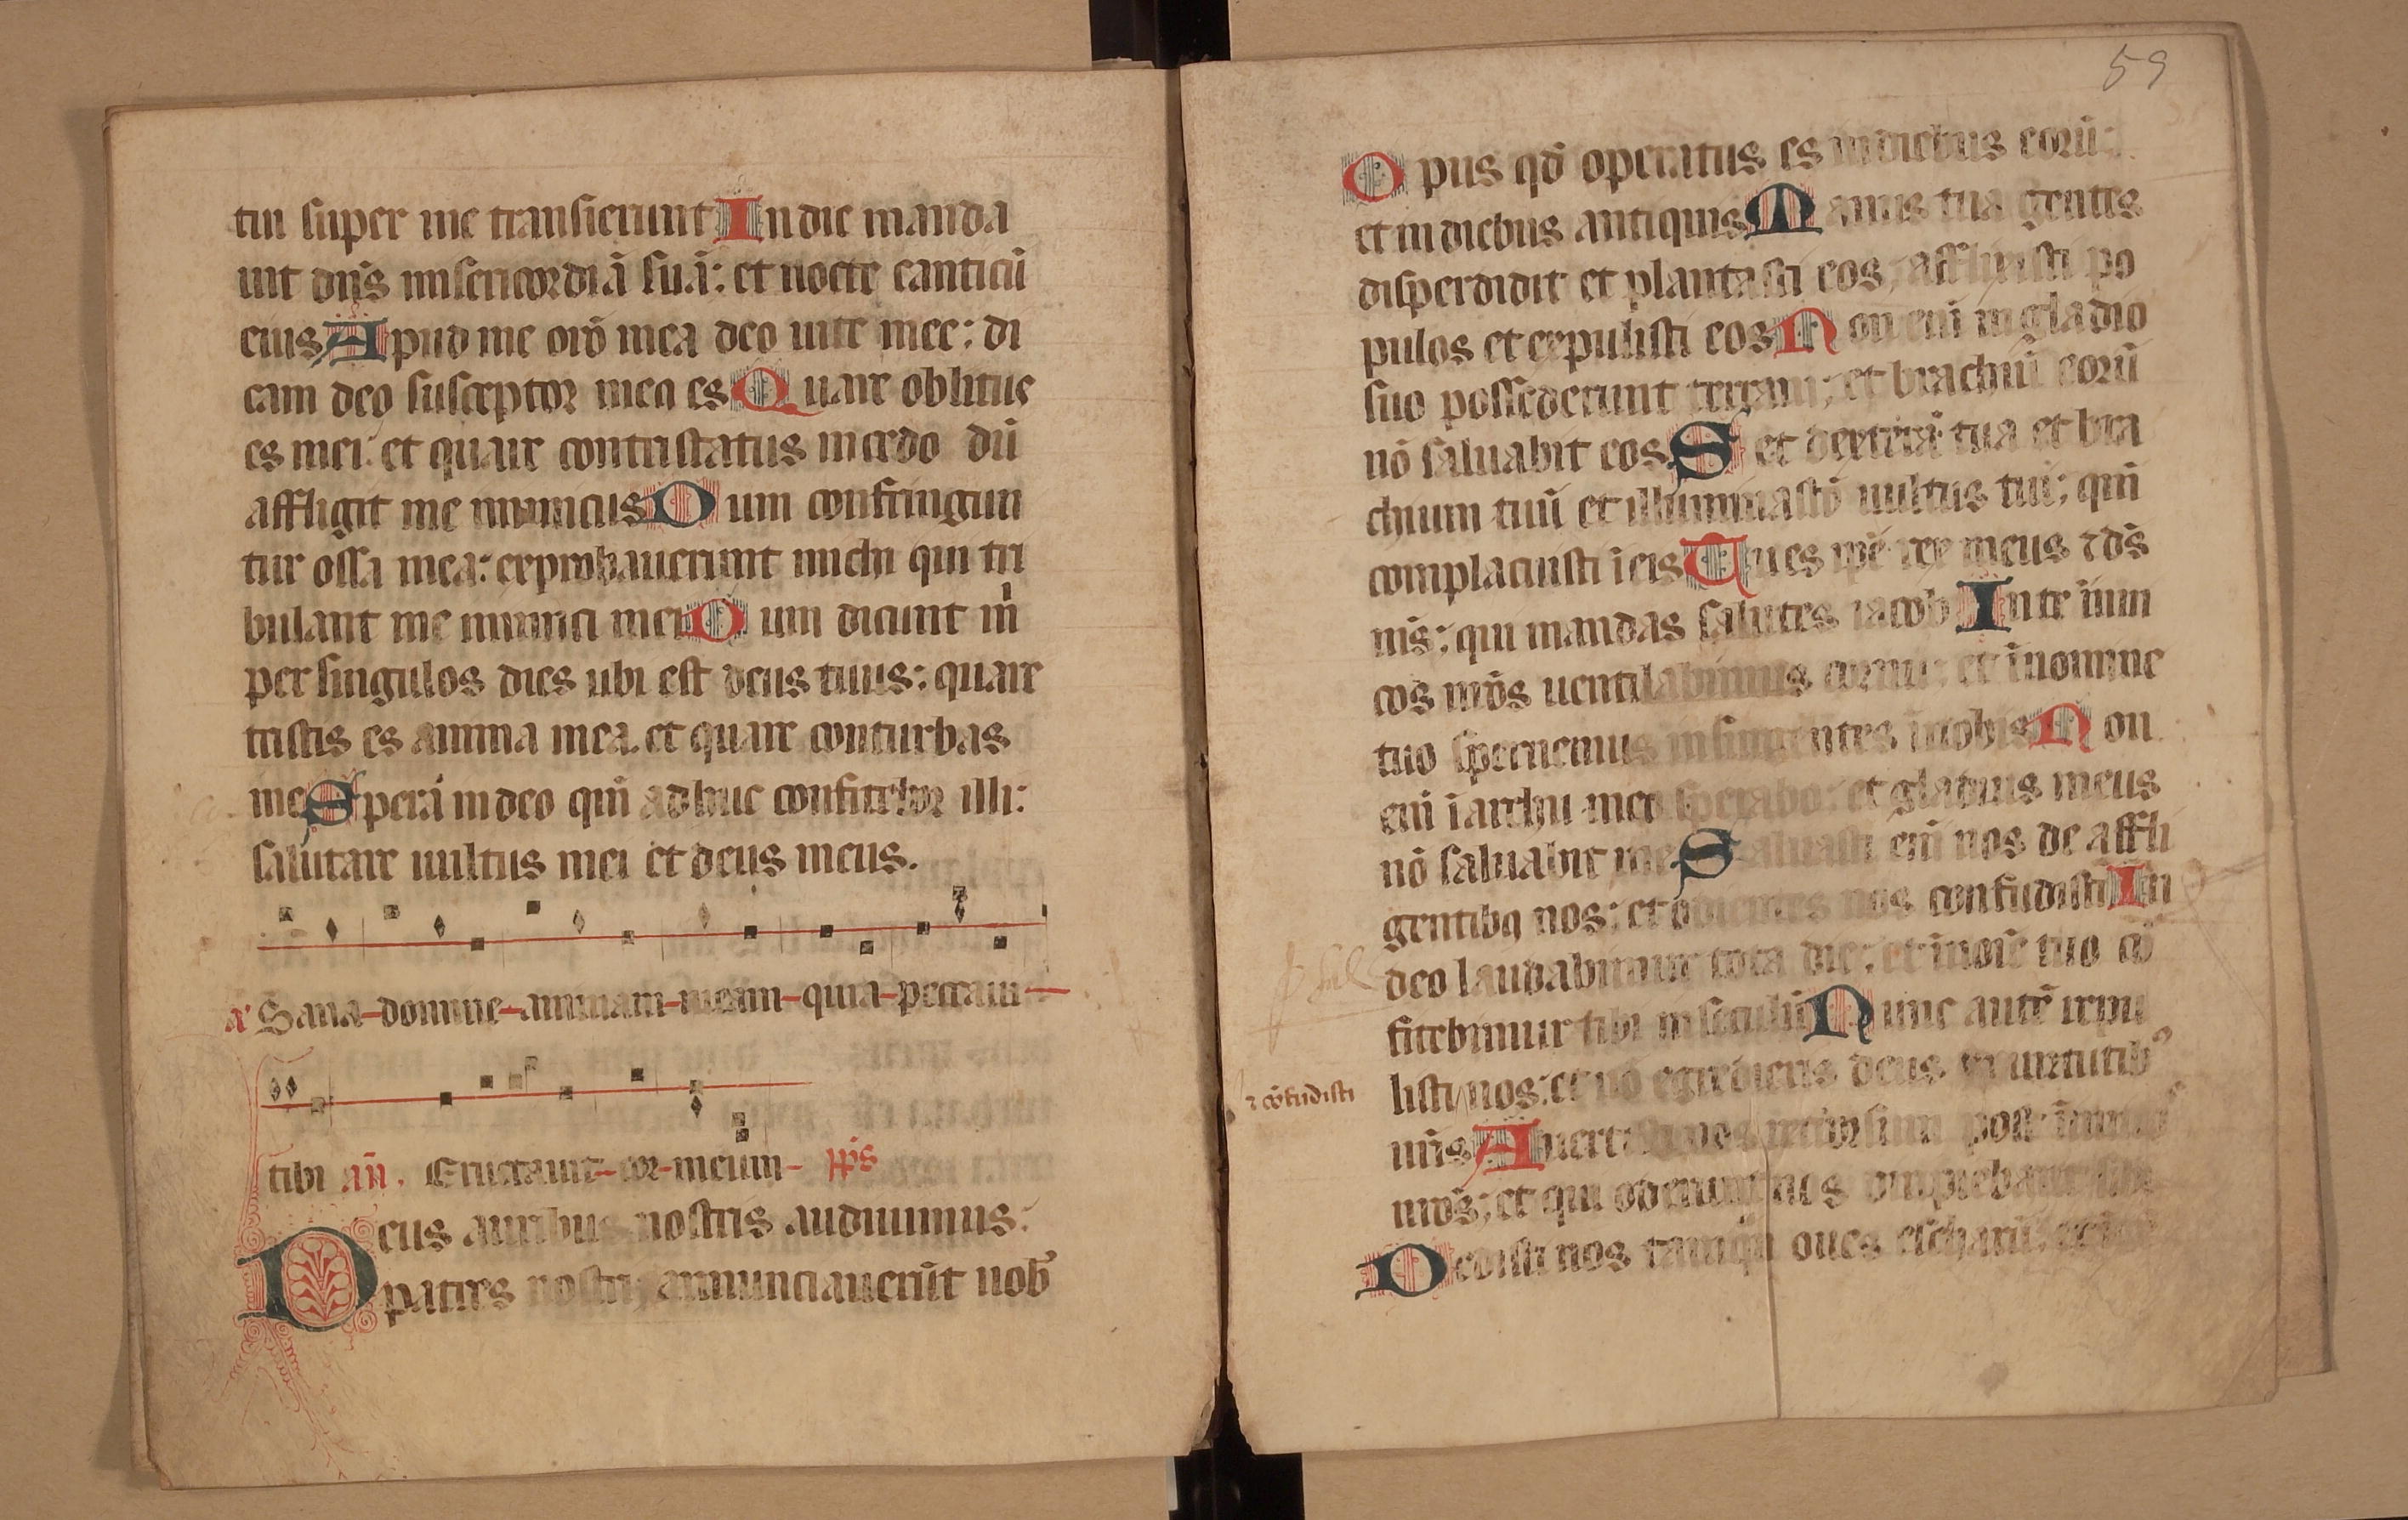 tui super me transierunt In die manda
uit dn̄s misericordiā suā: et nocte canticū
eius Apud me orō mea deo uite mee: di
cam deo susceptor meꝯ es Quare oblitus
es mei: et quare contristatus incedo dū
affligit me inimicus Dum confringun
tur ossa mea: exprobauerunt michi qui tri
bulant me inimici mei Dum dicunt m̄
per singulos dies ubi est deus tuus: quare
tristis es anima mea. et quare conturbas
me Spera in deo qm̄ adhuc confitebor illi:
salutare uultus mei et deus meus.
a' Sana domine animam meam quia peccaui
tibi an̄. Eructauit cor meum p̄s
Deus auribus nostris audiuimus:
patres nostri annunciauerūt nob̄
59
Opus qd̄ operatus es in diebus eorū:
et in diebus antiquis Manus tua gentes
disperdidit et plantasti eos, afflixisti po
pulos et expulisti eos Non eni in gladio
suo possederunt terram: et brachiū eorū
nō saluabit eos Set dextera tua et bra
chium tuū et illuminatō uultus tui: qm̄
complacuisti ī eis Tu es ip̄e rex meus ⁊ ds̄
ms̄: qui mandas salutes iacob In te inim
cos nr̄os uentilabimus cornu: et ī nomine
tuo spernemus insurgentes ī nobis Non
eni ī archu meo sperabo: et gladius meus
nō saluabit me Saluasti eni nos de affli
gentibꝯ nos: et odientes nos confudisti In
deo laudabimur tota die: et ī noīe tuo cō
fitebimur tibi in seculū Nunc autē repu
listi nos: et nō egredieris deus in uirtutibꝯ
⁊ cōfudisti
nr̄is Auertisti nos retrorsum post inimicos
nr̄os: et qui oderunt nos diripiebant sibi
Dedisti nos tamqͣ oues escharū: